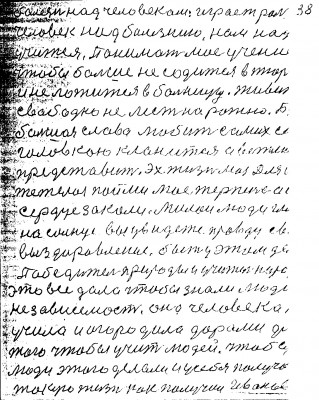 болезн над человеком играет рол 38
человек над болезнию, нам над
учится, понимат мое учение
чтобы больше не садится в тюр
и не ложится в больницу. Живи
свободно не лест на рожно. В
большая слава любит самих се
головкою кланятся
представит. Эх жизн моя для
тежелая пойми мое терпение
сердце закали. Милаи люди гля
на солнце вы увидете правду св
выздаравление, быть у этом де
победител природы и учител наро
это все дало чтобы знали люди
независемость, она человека,
учила и огородила дарами
того чтобы учит людей. чтобы
люди этого делали и у себя получа
такую жизн как получил Иванов